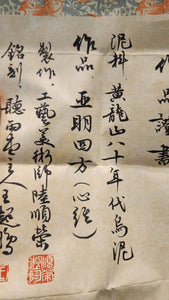 作品證書
泥料 黃龍山八十年代烏泥
作品 亚明四方（心經）
製作 工藝美術師陸順榮
銘刻 聽雨主人王超鷹